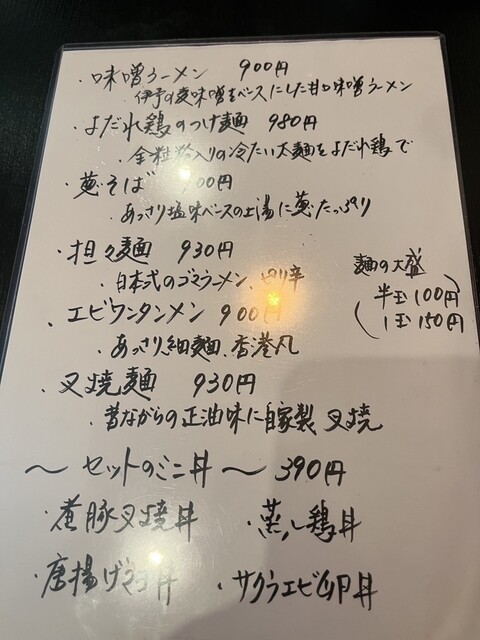 ・味噌ラーメン 900円
・伊予の麦味噌をベースにした甘口味噌ラーメン
・よだれ鶏のつけ麺 980円
・全粒粉入りの冷たい太麺をよだれ鶏で
・葱そば 00円
・あっさり塩味ベースの上湯に葱たっぷり
・担々麺 930円
・日本式のゴマラーメン、ピリ辛
麺の大盛
半玉100円
1玉150円
・エビワンタンメン 900円
・あっさり、細麺、香港風
・叉焼麺 930円
・昔ながらの正油味に自家製 叉焼
〜セットのミニ丼〜 390円
・煮豚叉焼丼 ・蒸し鶏丼
・唐揚げ 丼 ・サクラエビ卵丼